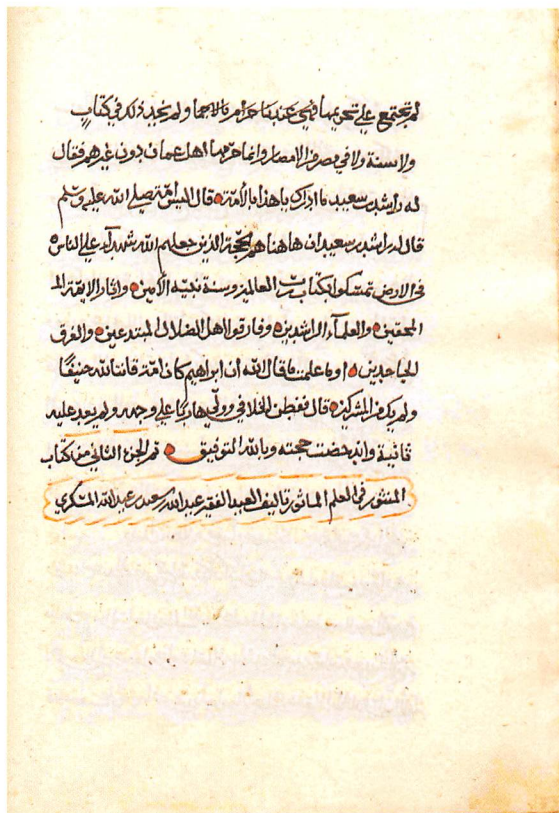 لم تجتمع علي تحريمها فهي عندنا حرام بالاجماع ولم نجد ذلك في كتاب
ولا سنة ولا في مصر من الامصار وانما حرمها اهل عمان دون غيرهم فقال
له راشد بن سعيد ما ادراك يا هذا بالأمة قال اليس امة محمد صلي الله عليه وسلم
قال له راشد بن سعيد ان هاهنا هم الحجة الذين جعلهم الله شهدآء علي الناس
في الارض تمسكوا بكتاب رب العالمين وسنة نبيه الأمين واثار الايمة
المحقين والعلمآء الراشدين وفارقوا اهل الضلال المبتدعين والفرق
الجاحدين اوما علمت ما قال الله ان ابراهيم كان امة قانتا لله حنيفًا
ولم يك من المشركين قال ففطن الخلافي وولّي هاربًا علي وجهه ولم يعد عليه
ثانية واندحضت حجته وبالله التوفيق تم الجزء الثاني من كتاب
المنثور في العلم الماثور تاليف العبد الفقير عبدالله بن سعيد بن عبدالله